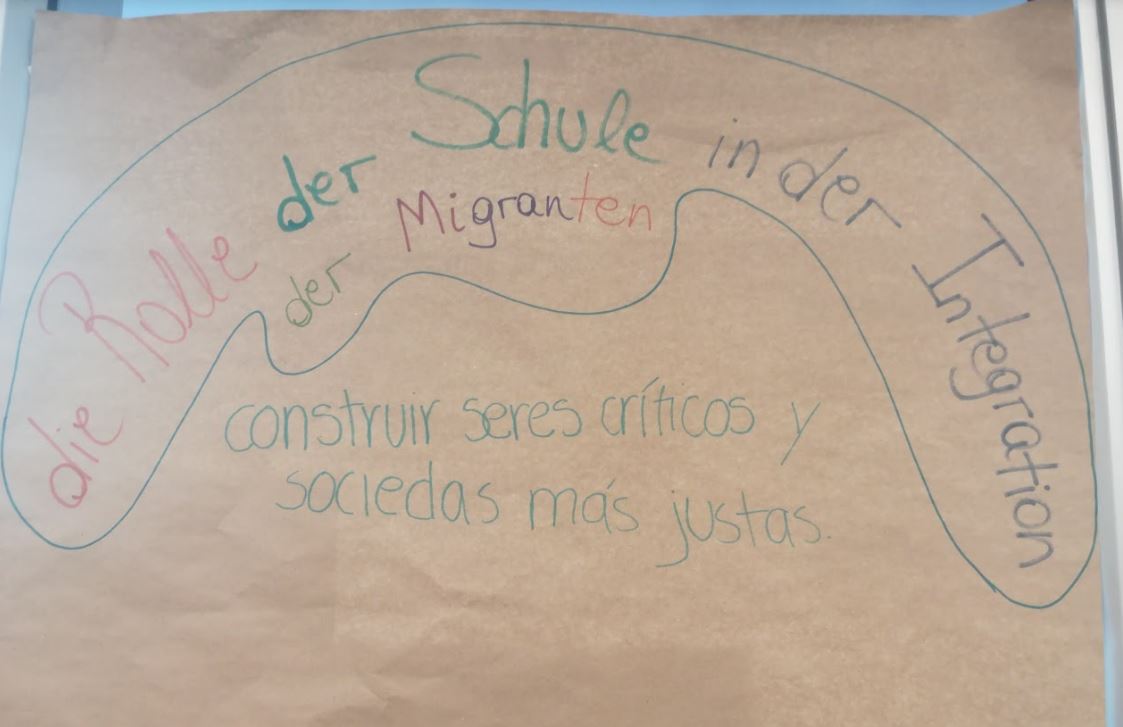 die Rolle der Schule in der Integration
der Migranten
construir seres críticos y
sociedas más justas.